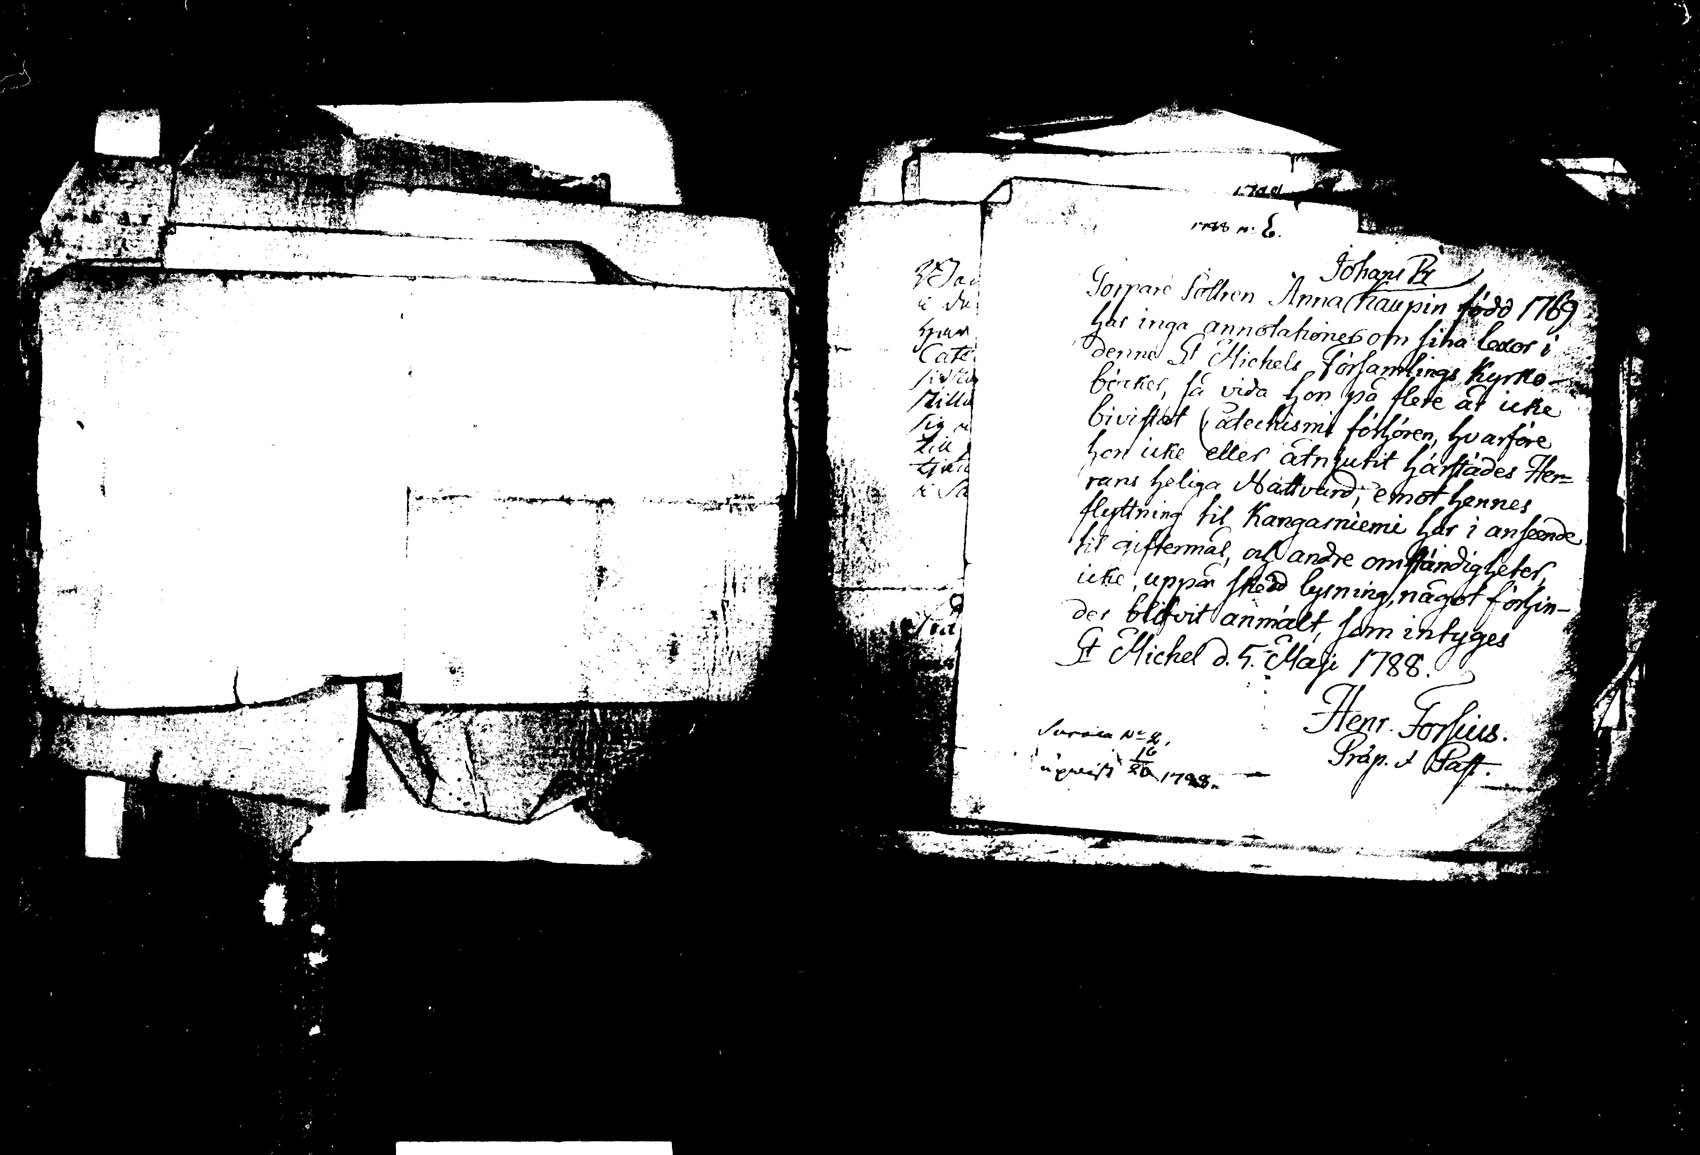 1788
1788 n. 6.
Johans Dr
Torpare dottren Anna Kaupin född 1769
har inga annotationer om sina lexor i
denne St Michels Församlings Kyrko-
böcker, så vida hon på flere år icke
bivistat Catechismi förhören, hvarföre
hon icke eller åtnjutit härstädes Her=
rans heliga Nattvard; emot hennes
flyttning til Kangasniemi har i anseende
til giftermål, och andre omständigheter,
icke, uppå skedd lysning, något förhin-
der blifvit anmält, som intyges
St Michel d. 5. Maji 1788.
Henr. Forsius.
Præp. & Past.
N: 2,
1788.